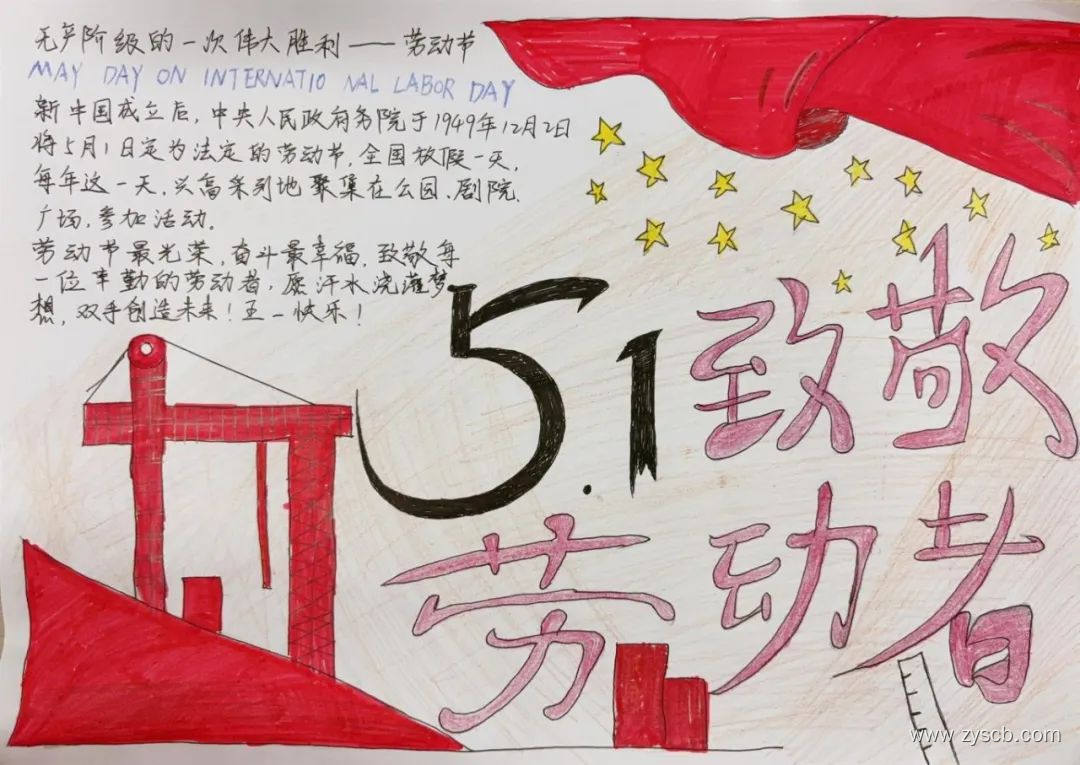 无产阶级的一次伟大胜利——劳动节
MAY DAY ON INTERNATIO NAL LABOR DAY
新中国成立后,中央人民政府务院于1949年12月2日
将5月1日定为法定的劳动节,全国放假一天,
每年这一天,兴高采列地聚集在公园、剧院、
广场,参加活动。
劳动节最光荣,奋斗最幸福,致敬每
一位辛勤的劳动者,愿汗水浇灌梦
想,双手创造未来!五一快乐!
5.1
致敬
劳动者
www.zyscb.com